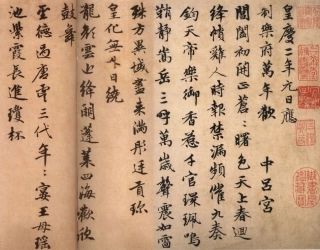 皇慶二年元日應
制樂府萬年歡 中呂宮
閶闔初開正蒼〻曙色天上春迴
絳幘雞人時報禁漏頻催九奏
鈞天帝樂御香惹千官環珮鳴
鞘靜嵩岳三呼萬歲聲震如雷
殊方異域盡来滿彤廷貢珍
皇化無外日繞
龍顏雲近絳闕蓬萊四海歡欣
鼓舞
聖德過唐虞三代年〻宴王母瑤
池紫霞長進瓊杯